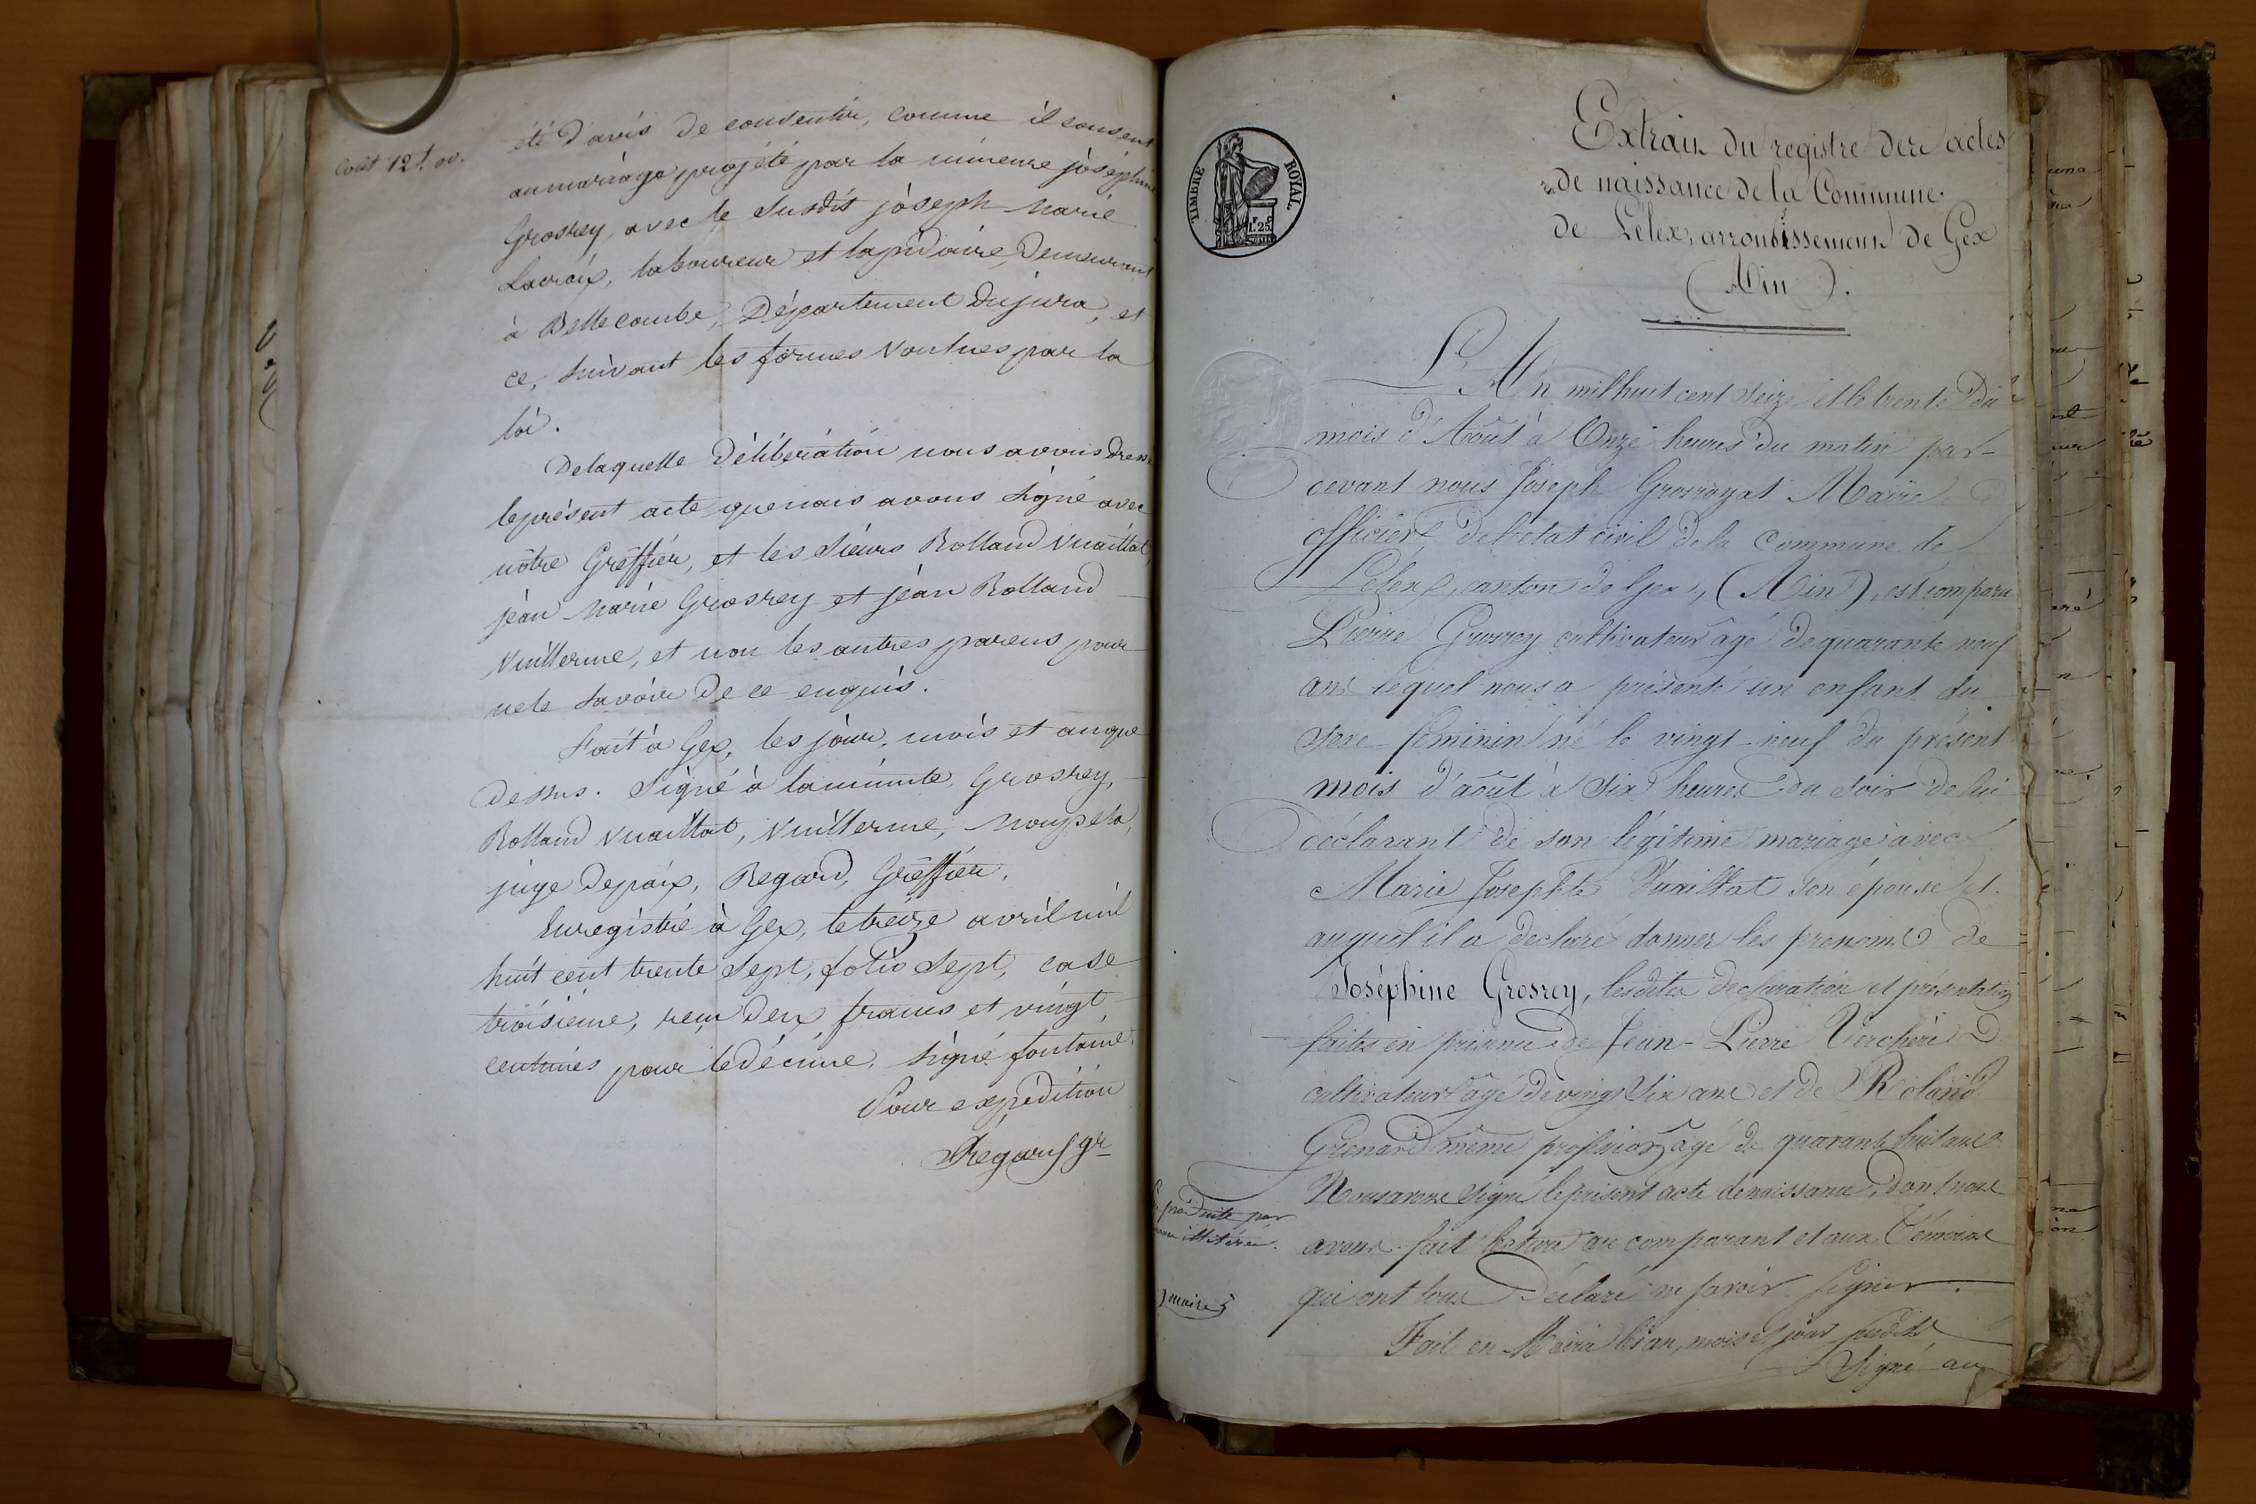 Coût 12f. 00.
été d'avis de consentir, comme il consent
au mariage projété par la mineure joséphine
Grosrey, avec le susdit joseph marie
Lavoix, laboureur et lapidaire, demeurant
à Bellecombe, Département du jura, et
ce, suivant les formes voulues par la
loi.
De laquelle délibération nous avons dressé
le présent acte que nous avons signé avec
nôtre Greffier, et les sieurs Rolland Vuaillat,
jean marie Grosrey et jean Rolland
Vuillerme, et non les autres parens pour
ne le savoir de ce enquis.
Fait à Gex, les jour, mois et an que
dessus. Signé à la minute, Grosrey,
Rolland Vuaillat, Vuillerme,
juge de paix, Regard, Greffier.
Enregistré à Gex, le treize avril mil
huit cent trente sept, folio sept, case
troisième, reçu deux francs et vingt
centimes pour le décime. Signé fontaine.
Pour expédition
Regard gr
TIMBRE ROYAL
1.25
Extrait du registre des actes
de naissance de la Commune
de Lélex, arrondissement de Gex
(Ain).
L'An mil huit cent seize et le trente du
mois d'Août à Onze heures du matin par-
devant nous Joseph Grosroyat Maire
officier de l'etat civil de la Commune de
Lélex, canton de Gex, (Ain), est comparu
Pierre Grosrey cultivateur âgé de quarante neuf
ans lequel nous a présenté un enfant du
sexe féminin né le vingt-neuf du présent
mois d'août à six heures du soir de lui
déclarant de son légitime mariage avec
Marie Josephte Vuaillat son épouse et
auquel il a declaré donner les prenoms de
Joséphine Grosrey, lesdites declaration et présentation
faites en présence de Jean-Pierre Verchère
cultivateur âgé de vingt six ans et de Roland
Grenard même profession âgé de quarante huit ans
Nous avons signé le présent acte de naissance, dont nous
avons fait lecture au comparant et aux Témoins
qui ont tous Déclaré ne savoir signer.
Fait en Mairie les an, mois et jour susdits
Signé au
produite par
maire